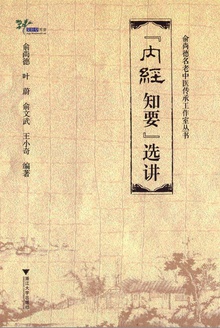 俞尚德名老中医传承工作室丛书
『内經知要』选讲
俞尚德 叶蔚 俞文武 王小奇 编著
浙江大学出版社